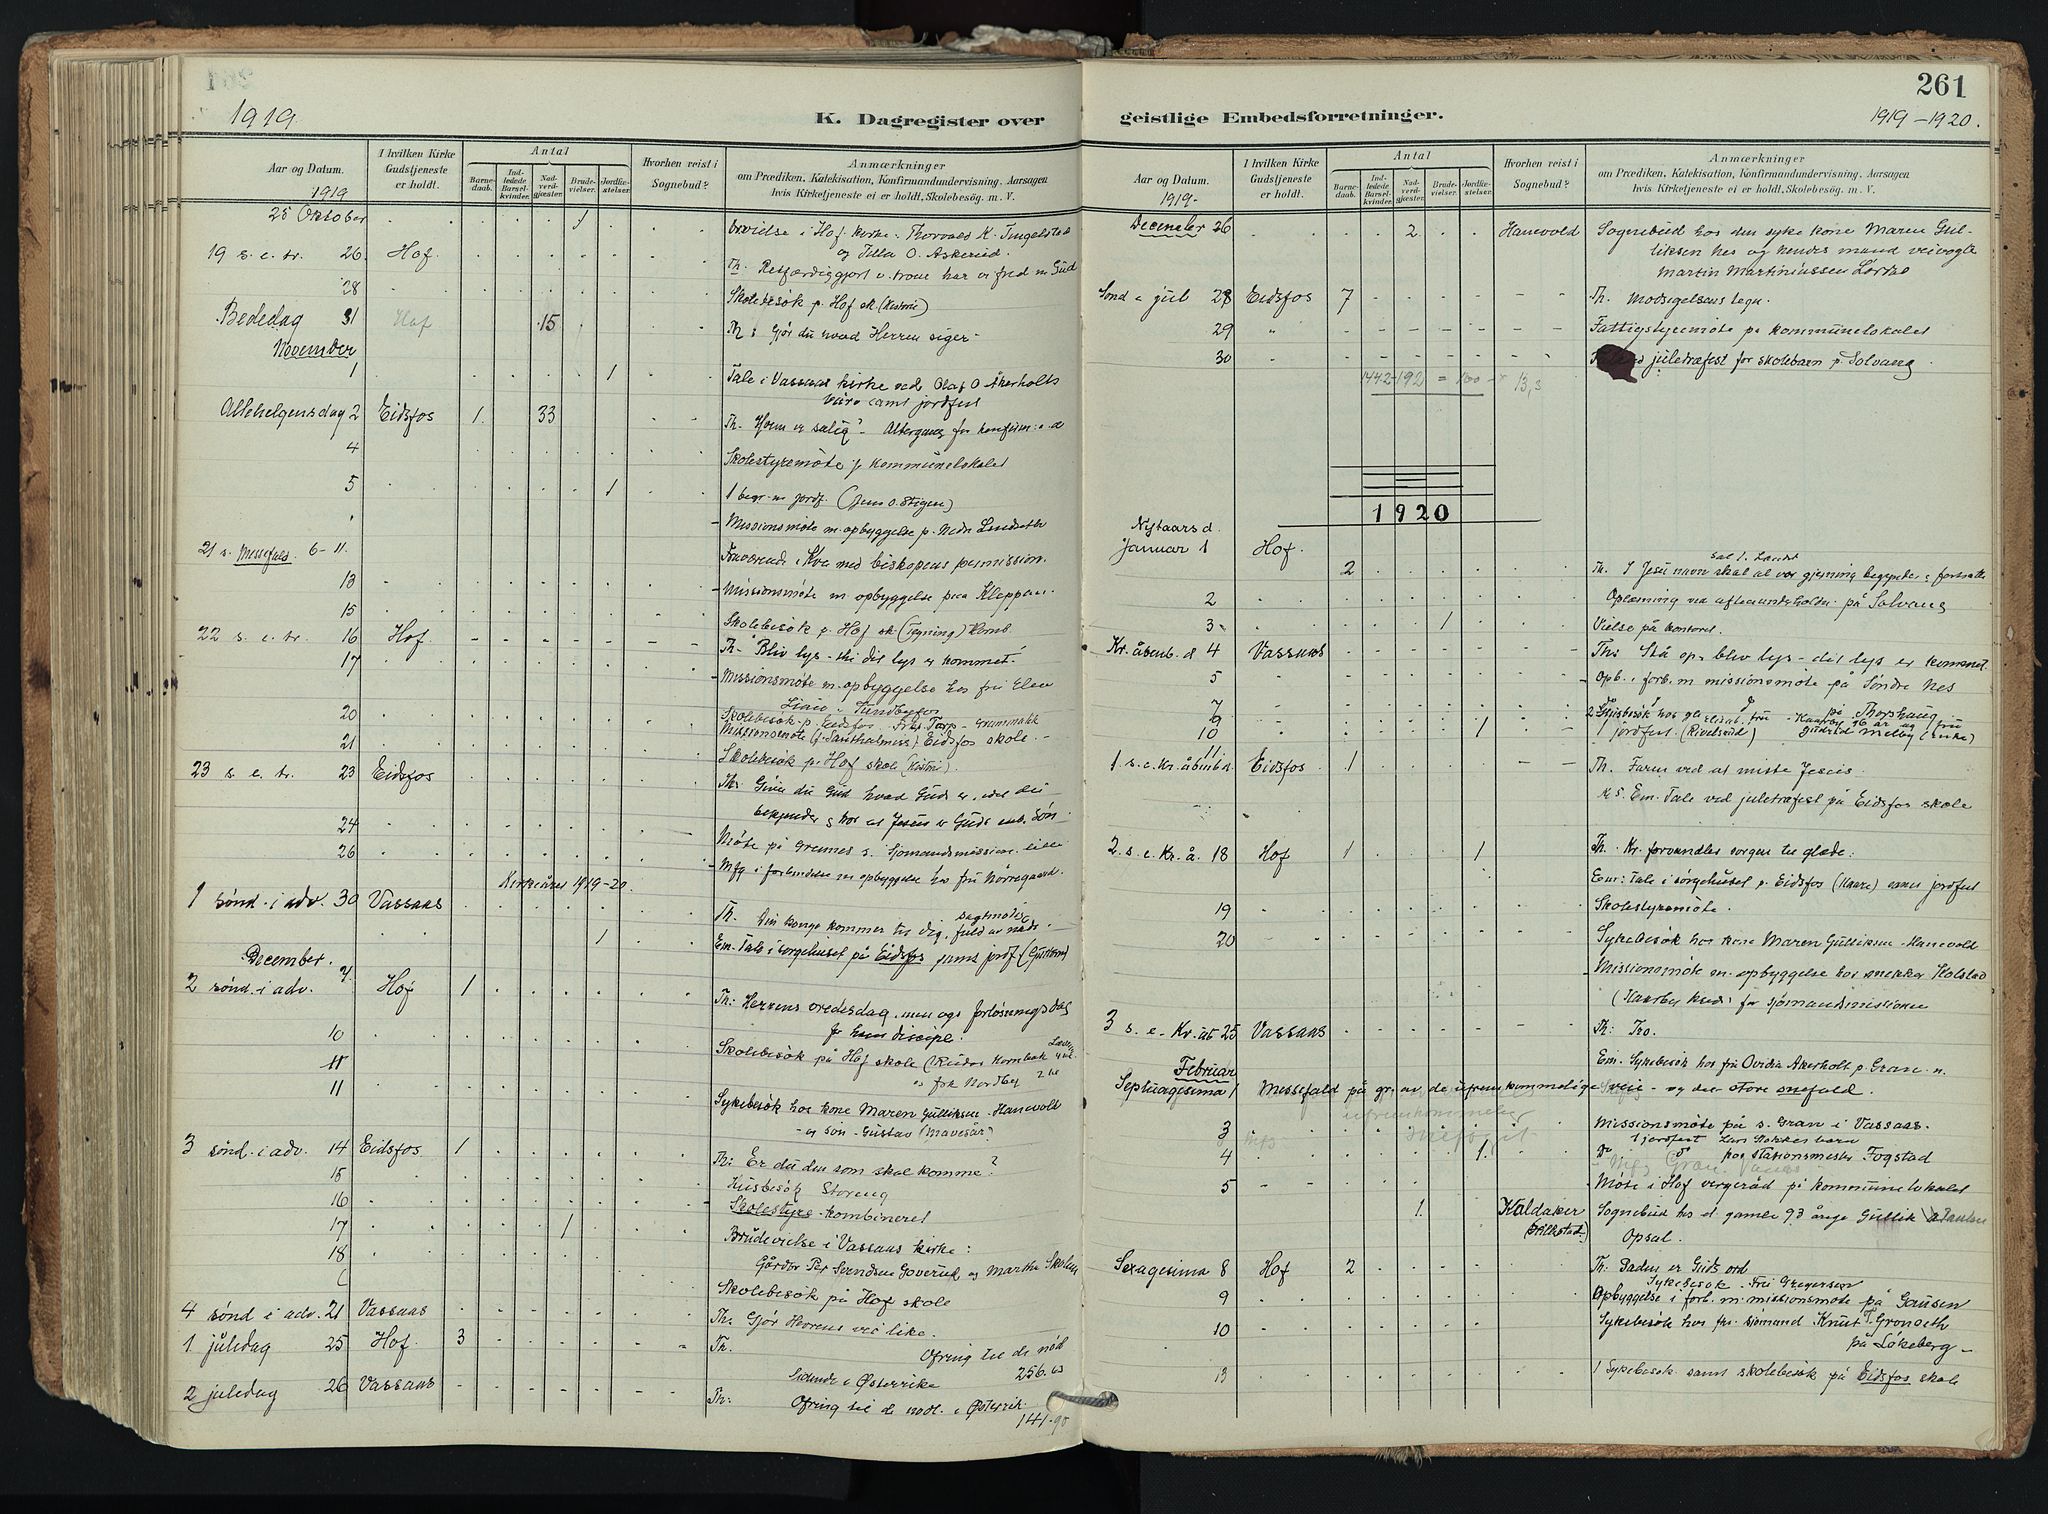 1919.
K. Dagregister over
Aar og Datum.
1919
I hvilken Kirke Gudstjeneste er holdt.
Antal
Barne-daab.
Ind-ledede Barsel-kvinder.
Nad-verd-gjæster.
Brude-vielser.
Jordfæ-stelser.
Hvorhen reist i Sognebud?
Anmærkninger
om Prædiken, Katekisation, Konfirmandundervisning, Aarsagen
hvis Kirketjeneste ei er holdt, Skolebesøg m. V.
25 Oktober 1 i Hof kirke. Thorvald K. Tingelstad
og O. Askerud.
19 s. e. tr. 26. Hof. Th. Retfærdiggjort v. troen har vi fred m Gud
28 Skolebesøk p. Hof sk. (historie)
Bededag 31 Hof 15 Th: Gjør du hvad Herren siger
November
1 1 Tale i Vassaas kirke ved Olaf O Åkerholts
båre samt jordfest
Allehelgensdag 2 Eidsfos 1. 33 Th. Hvem er salig? Altergang for konfirm.
4 Skolestyremøte p. Kommunelokalet
5 1 1 begr. m jordf. (Jens O. Stigen)
Missionsmøte m. opbyggelse p. Nedre Lindseth
21 s. Messefald. 6-11. Fraværende i Kra med biskopens permission.
13 Missionsmøte m. opbyggelse paa Kleppan.
15 Skolebesøk p. Hof sk. (Tegning) komb.
22 s. e. tr. 16 Hof. Th. Bliv lys thi dit lys er kommet.
17 Missionsmøte m. opbyggelse hos fru Elen
20 Skolebesøk p. Eidsfos Frk. Torp - Grammatikk
Missionsmøte (f. Santhalmiss.) Eidsfos skole.
21 Skolebesøk p. Hof skole (Historie)
23 s. e. tr. 23 Eidsfos Th: Giver du Gud hvad Guds er, ved du
bekjender og tror at Jesus er Guds enb. søn
24 Møte på Grennes s. Sjømandsmission
26 Mfg i forbindelse m opbyggelse hos fru Nørregaard.
Kirkeåret 1919-20.
1 sønd. i adv. 30 Vassaas Th. Din konge kommer til dig, sagtmodig full av nåde.
1 Em. Tale i sørgehuset på Eidsfos samt jordf.
December.
2 sønd. i adv. 7. Hof 1 Th: Herrens vredesdag, men ogs. forløsningsdag
for hans disciple.
10 Skolebesøk på Hof skole
11 frk Nordby 2 kl
11 Sykebesøk hos kone Maren Gulliksen Hanevold
og søn Gustav (Mavesår)
3 sønd. i adv. 14 Eidsfos 1 Th: Er du den som skal komme?
15 Husbesøk Storeng
16 Skolestyre - kombineret
17 1 Brudevielse i Vassaas kirke:
Gårdbr Per Svendsen Goverud og Martha Skolen
18 Skolebesøk på Hof skole
4 sønd i adv. 21 Vassaas Th. Gjør Herrens vei like.
1 juledag 25 Hof. 3 Th. Ofring til de nød
lidende i Østerrike 256.
2 juledag 26 Vassaas Th: Ofring til de nødl. i Østerrik.
141.90
261
geistlige Embedsforretninger.
1919-1920.
Aar og Datum.
1919-
I hvilken Kirke Gudstjeneste er holdt.
Antal
Barne-daab.
Ind-ledede Barsel-kvinder.
Nad-verd-gjæster.
Brude-vielser.
Jordfæ-stelser.
Hvorhen reist i Sognebud?
Anmærkninger
om Prædiken, Katekisation, Konfirmandundervisning, Aarsagen
hvis Kirketjeneste ei er holdt, Skolebesøg m. V.
December 26 2 Hanevold Sognebud hos den syke kone Maren Gul-
liksen hos og hendes mand veivogte
Martin Martiniussen
Sønd e jul 28 Eidsfos 7 Th. Modsigelsens tegn.
29 Fattigstyremøte på Kommunelokalet
30 juletræfest for skolebarn p. Solvang
1442-192 = 13,3
1920
Nytaarsd.
Januar 1 Hof. 2 Th. I Jesu navn skal al vor gjerning begyndes og fortsættes
2 Oplæsning ved aftenunderholdn. på Solvang
3 1 Vielse på kontoret.
Kr. åbenb. d 4 Vassaas Th: Stå op, bliv lys - dit lys er kommet.
5 Opb. i forb. m missionsmøte på Søndre Nes
7
9
10 1 jordfest
1. s. e. Kr. åbenb d. 11 Eidsfos 1 Th. Faren ved at miste Jesus.
Em. Tale ved juletræfest på Eidsfos skole
2. s. e. Kr. å. 18 Hof 1 1 Th. Kr. forvandler sorgen til glæde.
Em: Tale i sørgehuset p. Eidsfos (Kaare) samt jordfest
19 Skolestyremøte.
20 Sykebesøk hos kone Maren Gulliksen Hanevold
Missionsmøte m. opbyggelse hos snekker Holstad
for sjømandsmissionen
3 s. e. Kr. åb 25 Vassaas Th: Tro.
Em. Sykebesøk hos fru Ovidia Åkerholt p. Gran.
Februar
Septuagesima 1 Messefald på gr. av de ufremkommelige veie - og den store snefald.
3 Missionsmøte på s. Gran i Vassaas.
4 1. 1 jordfest Lars barn
på stationsmester Fogstad
5 Møte i Hof vergeråd på kommunelokalet
1. Kaldaker (Hillestad) Sognebud hos d. gamle 93 årige Gullik
Opsal.
Sexagesima 8 Hof 2 Th. Sæden er Guds ord
Sykebesøk. Fru Gregersen
9 Opbyggelse i forb. m. missionsmøte på Gausen
10 Sykebesøk hos fhv. sjømand Knut T. Gronseth
på Løkeberg
13 1 Sykebesøk samt skolebesøk på Eidsfos skole